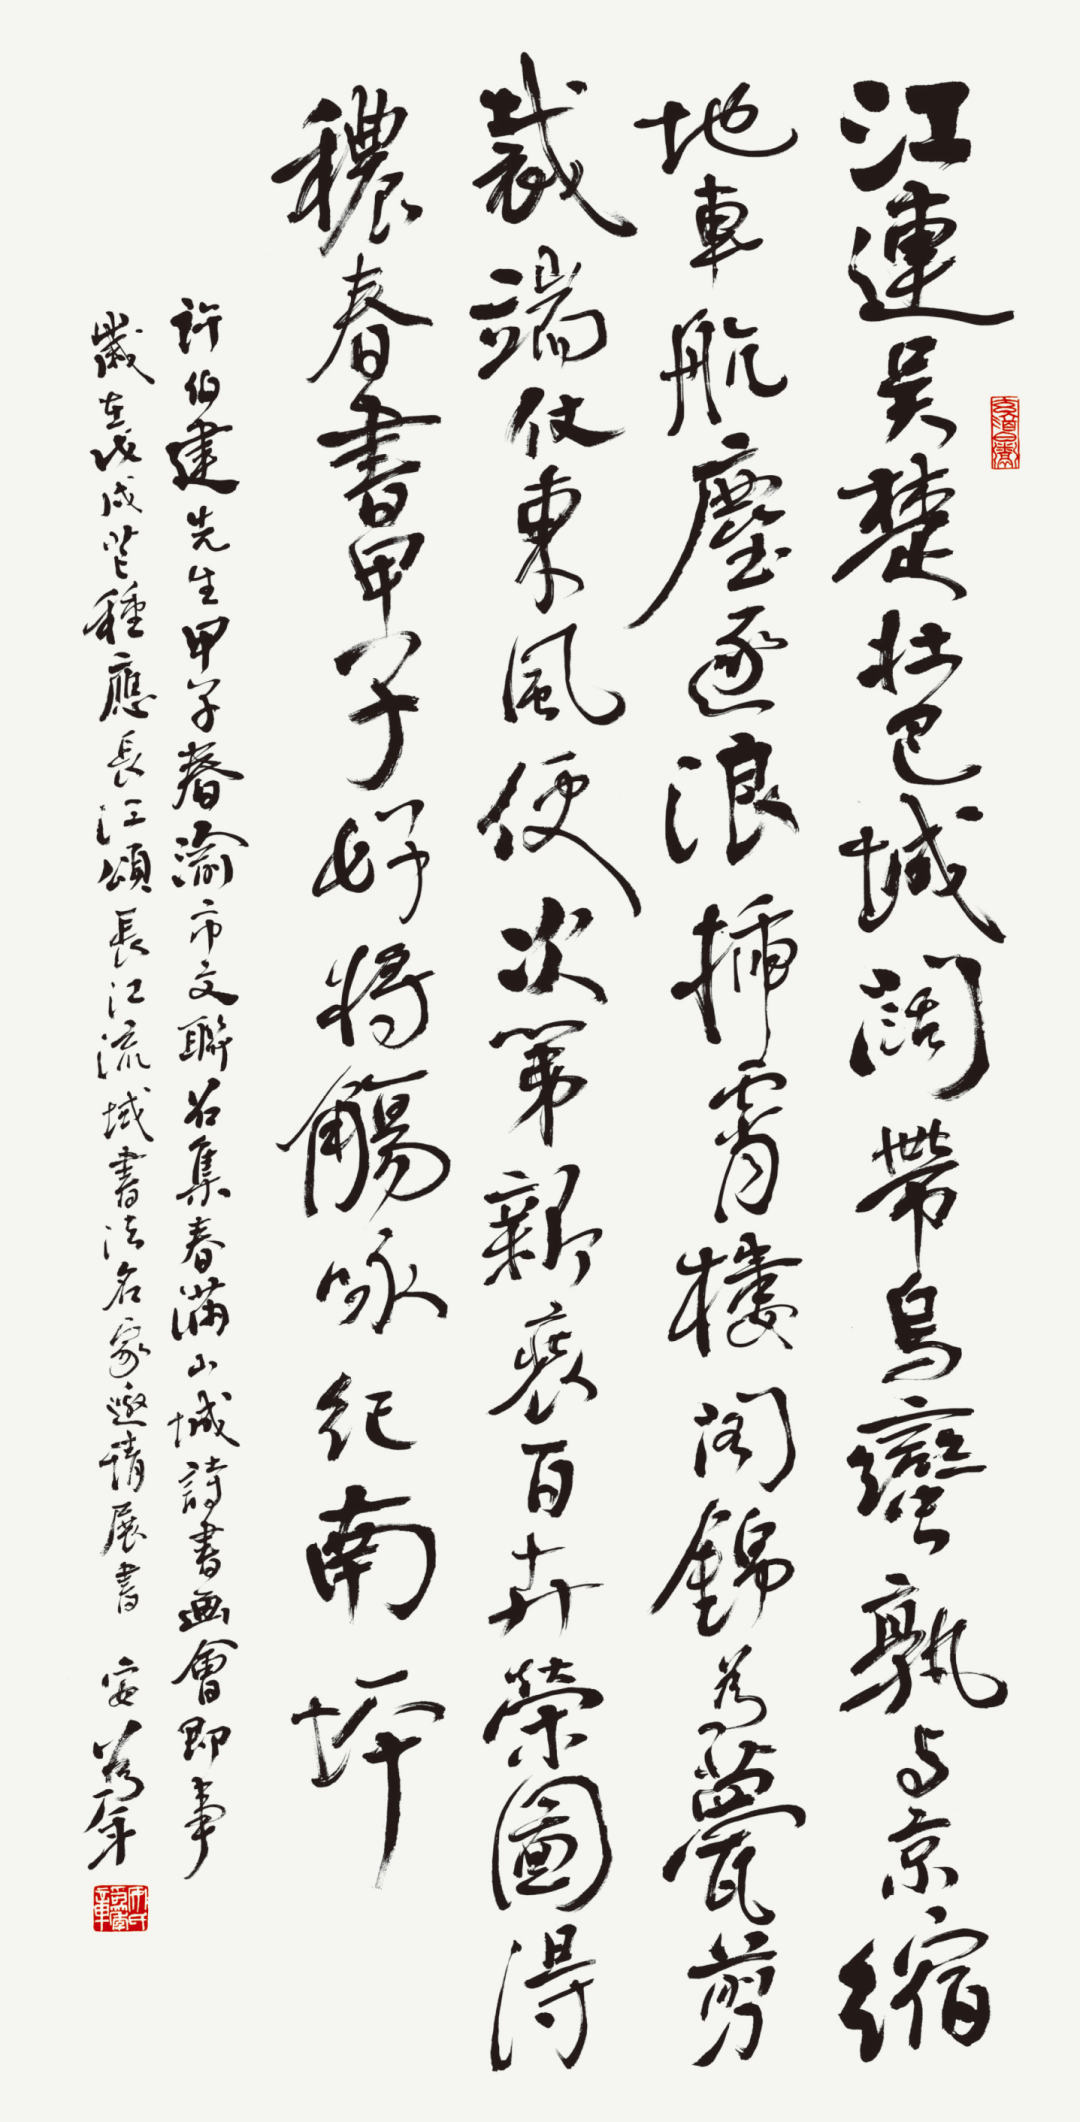 江連吳楚壯巴城闊帶烏蠻孰与京縮
地車航塵逐浪插霄樓閣錦為甍剪
裁端仗東風便次第新裝百卉榮圖得
穠春書甲子好將觴咏紀南坪
許伯建先生甲子春渝市文聯召集春滿山城詩書畫會即事
歲在戊戌芒種應長江頌長江流域書法名家邀請展書 安